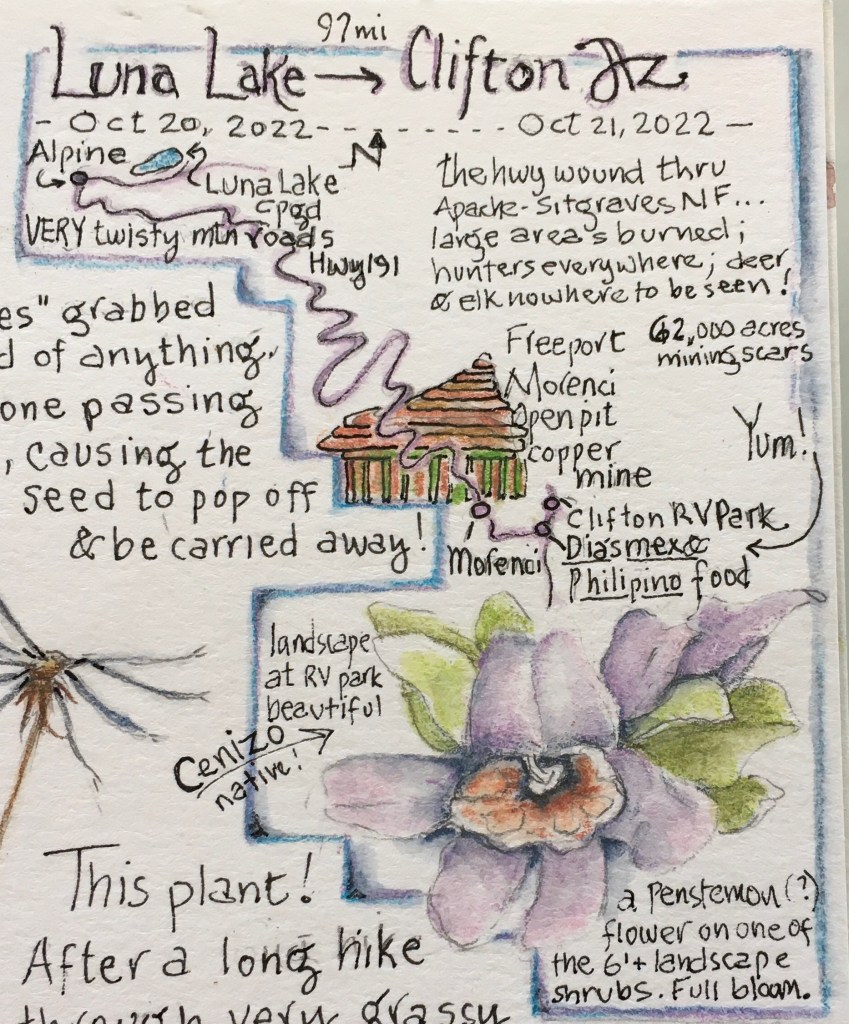 97mi
Luna Lake → Clifton Az
- Oct 20, 2022 - - - - - - - - Oct 21, 2022 -
N
Alpine
Luna Lake
cpgd
VERY twisty mtn roads
Hwy 191
the hwy wound thru
Apache-Sitgraves NF...
large area's burned;
hunters everywhere; deer
& elk nowhere to be seen!
Freeport
Morenci
open pit
copper
mine
62,000 acres
mining scars
Yum!
Morenci
Clifton RV Park
Dia's mex &
Philipino food
es" grabbed
d of anything.
one passing
, causing the
seed to pop off
& be carried away!
landscape
at RV park
beautiful
Cenizo
native!
a penstemon (?)
flower on one of
the 6'+ landscape
shrubs. Full bloom.
This plant!
After a long hike
through very grassy